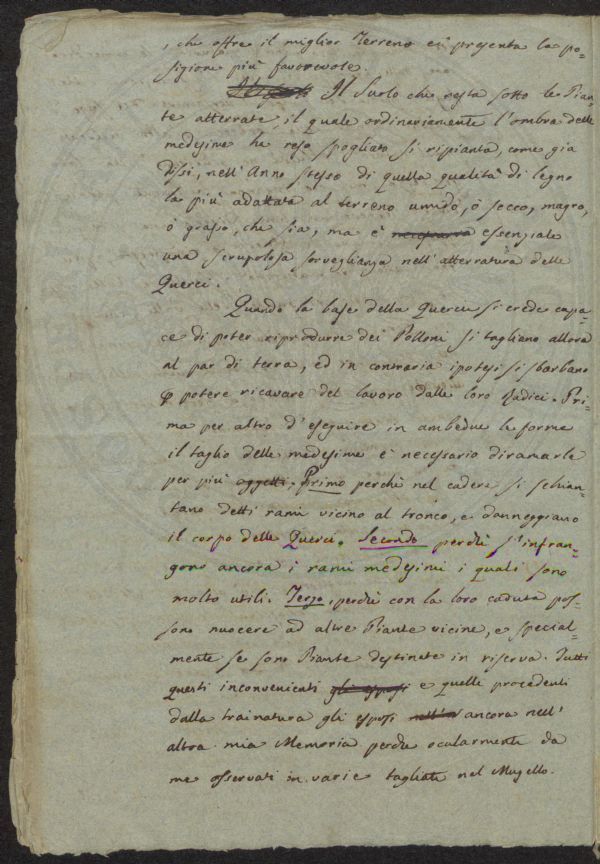 , che offre il miglior Terreno ed presenta la po-
sizione più favorevole.
Il Suolo che resta sotto le Pian-
te atterrate, il quale ordinariamente l'ombra delle
medesime ha reso spogliato si ripianta, come già
dissi, nell'Anno stesso di quella qualità di legno
la più adattata al terreno umido, ò secco, magro,
ò grasso, che sia, ma è necessaria essenziale
una scrupolosa sorveglianza nell'atterratura delle
Querci.
Quando la base della Quercia si crede capa-
ce di poter riprodurre dei Polloni si tagliano allora
al par di terra, ed in contraria ipotesi si sbarbano
p potere ricavare del lavoro dalle loro Radici. Pri-
ma per altro d'eseguire in ambedue le forme
il taglio delle medesime è necessario diramarle
per più oggetti. Primo perchè nel cadere si schian-
tano detti rami vicino al tronco, e danneggiano
il corpo delle Querci. Secondo perchè s'infran-
gono ancora i rami medesimi i quali sono
molto utili. Terzo, perchè con la loro caduta pos-
sono nuocere ad altre Piante vicine, e special-
mente se sono Piante destinate in riserva. Tutti
questi inconvenienti gli esposi e quelle procedenti
dalla trainatura gli esposi nell'a ancora nell'
altra mia Memoria perchè ocularmente da
me osservati in varie tagliate nel Mugello.